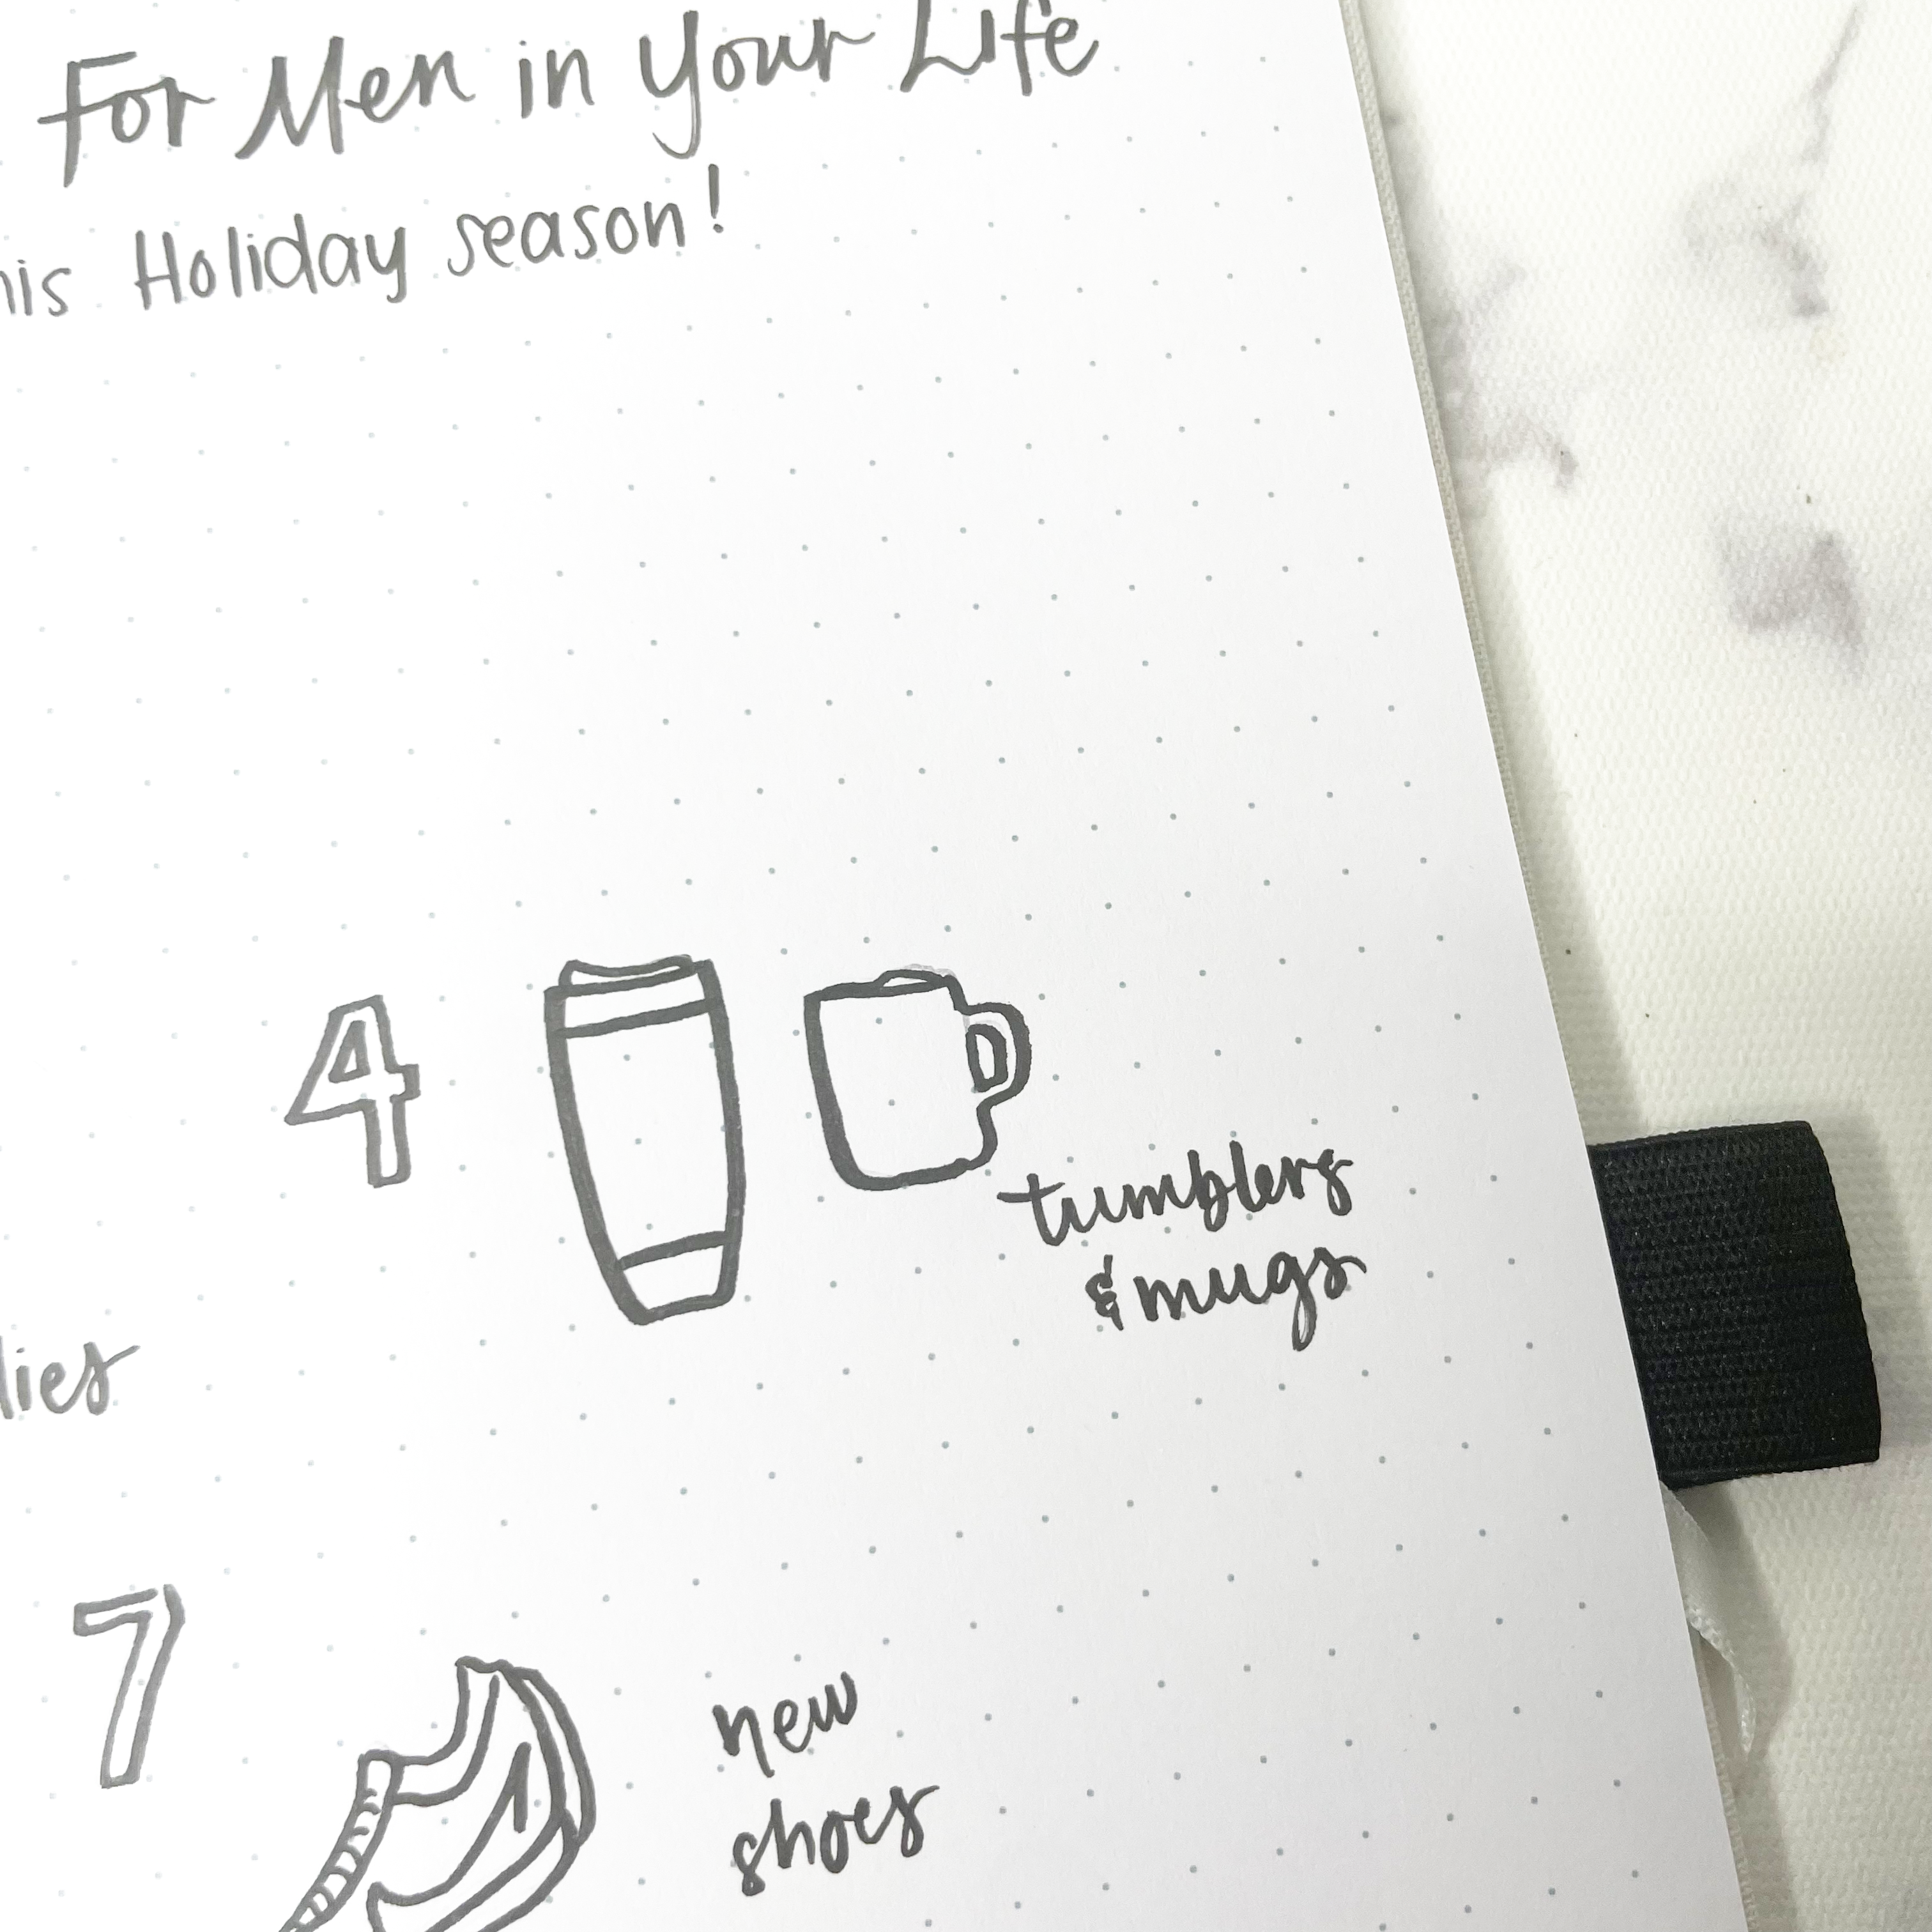 For Men in Your Life
his Holiday season!
4
tumblers
& mugs
lies
7
new
shoes